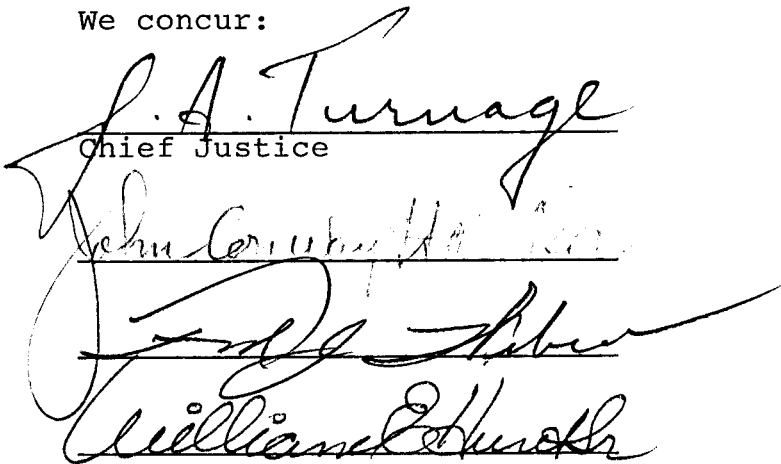 We concur:
J. A. Turnage
Chief Justice
John Conway
William E Hunt Sr